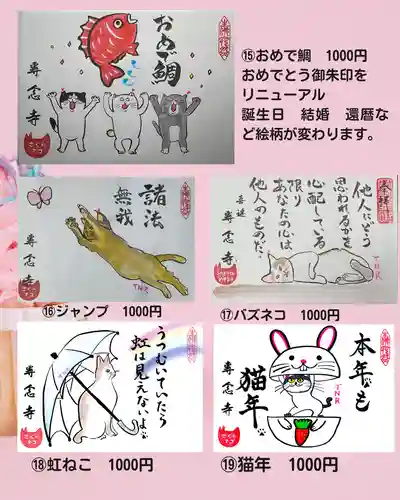 おめで鯛
専念寺
さくら
ネコ
⑮おめで鯛　1000円
おめでとう御朱印を
リニューアル
誕生日　結婚　還暦な
ど絵柄が変わります。
諸法
無我
専念寺
TNR
⑯ジャンプ　1000円
他人にどう
思われるかを
心配している
限り
あなたの心は
他人のものだ。
専念寺
TNR
⑰バズネコ　1000円
うつむいていたら
虹は見えないよ
専念寺
⑱虹ねこ　1000円
本年も
猫年
TNR
専念寺
⑲猫年　1000円